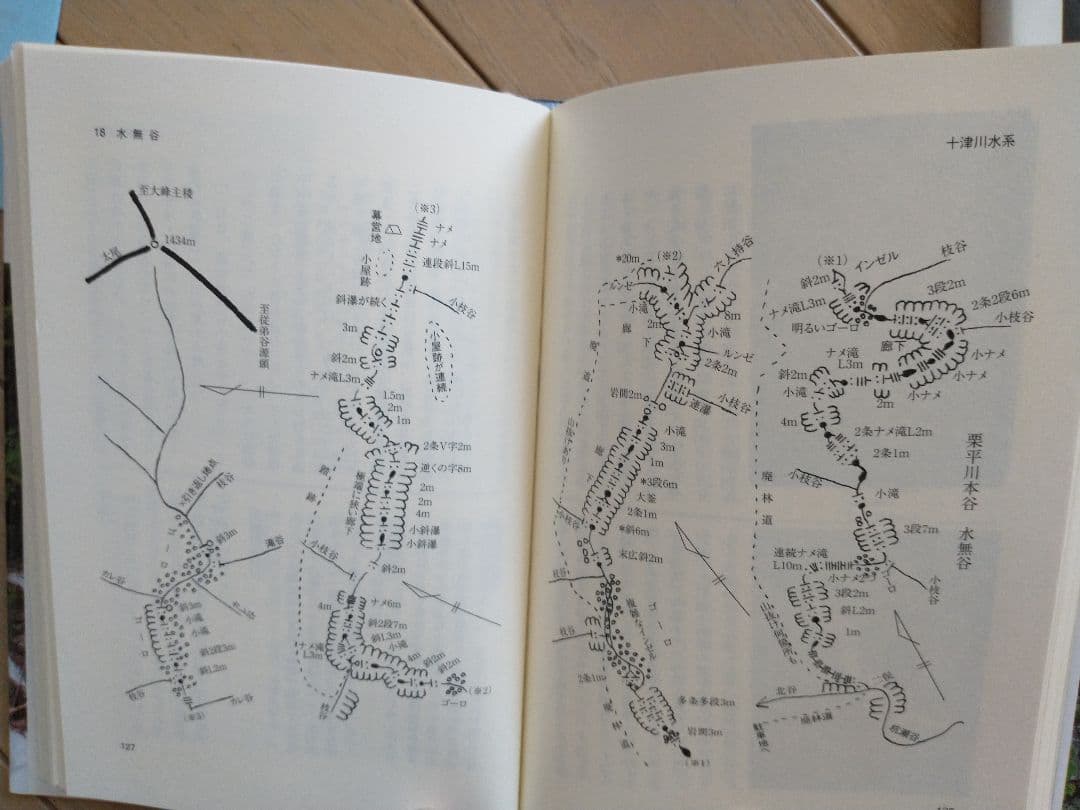 18 水無谷
至大峰主稜
1434m
大尾
至従弟谷源頭
引き返し地点
枝谷
ゴーロ
斜3m
滝谷
カレ谷
斜3m
小滝
小滝
ゴーロ
斜2段3m
斜L2m
枝谷
カレ谷
(※3)
127
(※3)
ナメ
ナメ
幕営地
小屋跡
連段斜L15m
小枝谷
斜瀑が続く
3m
小屋跡が連続
斜2m
ナメ滝L3m
1.5m
2m
1m
2条V字2m
逆くの字8m
2m
2m
4m
小斜瀑
小斜瀑
極端に狭い廊下
踏跡
小枝谷
斜2m
4m
ナメ6m
斜2段7m
斜L3m
小滝
ナメ滝
L3m
4m
斜2m
斜2m
(※2)
ゴーロ
枝谷
十津川水系
*20m
(※2)
六人持谷
ルンゼ
小滝
8m
2m
廊下
小滝
ルンゼ
2条2m
廃道
小枝谷
連瀑
岩間2m
小滝
3m
1m
廊下
*3段6m
大釜
2条1m
小枝谷
*斜6m
末広斜2m
枝谷
ゴーロ
枝谷
2条1m
多条多段3m
岩間3m
(※1)
(※1)
インゼル
枝谷
斜2m
3段2m
ナメ滝L3m
2条2段6m
明るいゴーロ
小枝谷
廊下
小ナメ
ナメ滝
L3m
小ナメ
斜2m
小滝
2m
4m
2条ナメ滝L2m
2条1m
小枝谷
小滝
廃林道
3段7m
栗平川本谷 水無谷
ゴーロ
連続ナメ滝
L10m
小ナメ
小枝谷
3段2m
斜L2m
1m
堰堤
二俣
北谷
廃林道